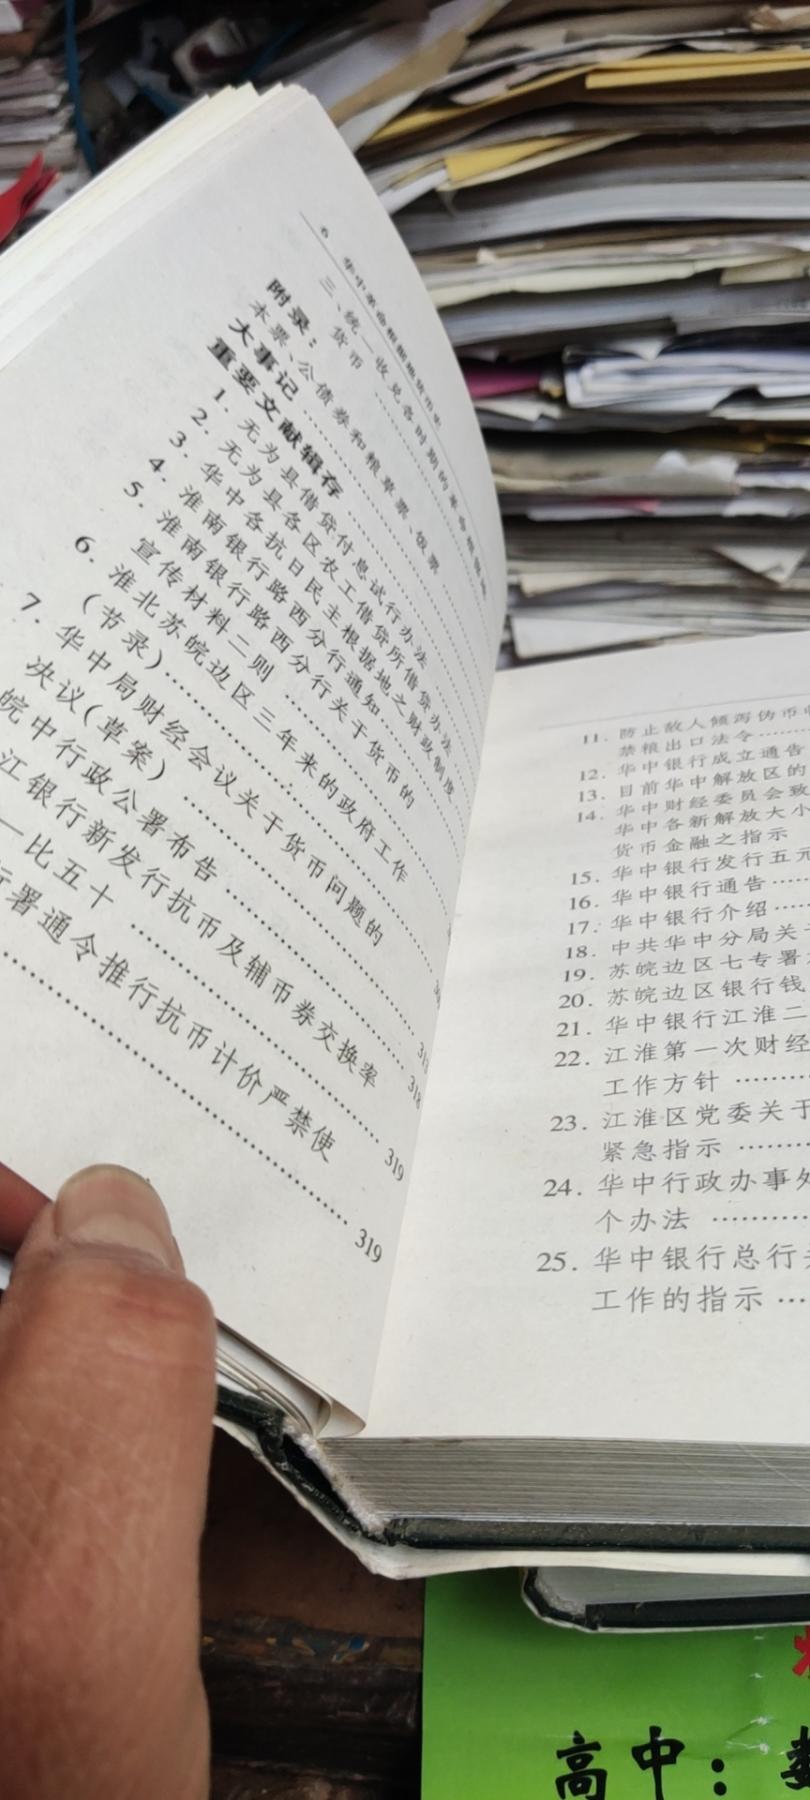 6 华中革命根据地货币史
三、统一收兑各时期的革命根据地
货币
附录：
本票、公债券和粮草票、饭票
大事记
重要文献辑存
1. 无为县借贷付息试行办法
2. 无为县各区农工借贷所借贷办法
3. 华中各抗日民主根据地之财政制度
4. 淮南银行路西分行通知
5. 淮南银行路西分行关于货币的
宣传材料二则
6. 淮北苏皖边区三年来的政府工作
(节录)
7. 华中局财经会议关于货币问题的
决议(草案)
皖中行政公署布告 318
江银行新发行抗币及辅币券交换率
一比五十 319
行署通令推行抗币计价严禁使
319
11. 防止敌人倾泻伪币
禁粮出口法令
12. 华中银行成立通告
13. 目前华中解放区的
14. 华中财经委员会致
华中各新解放大小
货币金融之指示
15. 华中银行发行五元
16. 华中银行通告
17. 华中银行介绍
18. 中共华中分局关于
19. 苏皖边区七专署
20. 苏皖边区银行钱
21. 华中银行江淮二
22. 江淮第一次财经
工作方针
23. 江淮区党委关于
紧急指示
24. 华中行政办事处
个办法
25. 华中银行总行关
工作的指示
高中：